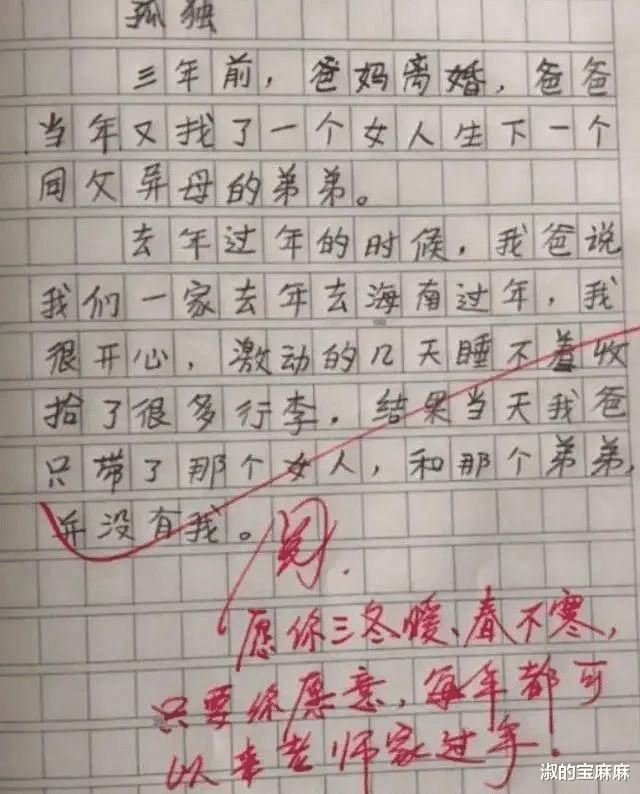 孤独
三年前，爸妈离婚，爸爸
当年又找了一个女人生下一个
同父异母的弟弟。
去年过年的时候，我爸说
我们一家去年去海南过年，我
很开心，激动的几天睡不着收
拾了很多行李，结果当天我爸
只带了那个女人，和那个弟弟，
并没有我。
阅.
愿你三冬暖、春不寒，
只要你愿意，每年都可
以来老师家过年.
淑的宝麻麻